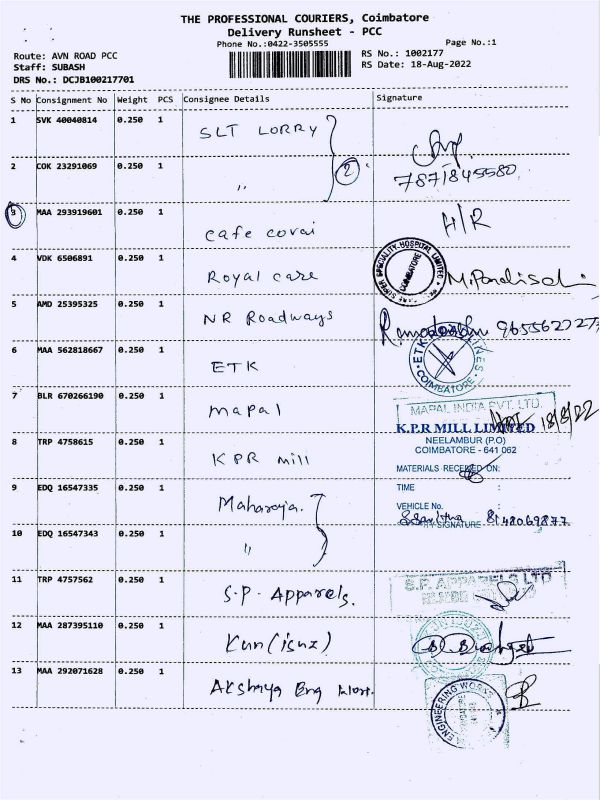 THE PROFESSIONAL COURIERS, Coimbatore
Delivery Runsheet - PCC
Phone No.:0422-3505555
Page No.:1
Route: AVN ROAD PCC
Staff: SUBASH
DRS No.: DCJB100217701
RS No.: 1002177
RS Date: 18-Aug-2022
S No Consignment No Weight PCS Consignee Details Signature
1 SVK 40040814 0.250 1 SLT LORRY
2 COK 23291069 0.250 1 " 2
7871845580
3 MAA 293919601 0.250 1 cafe covai H/R
4 VDK 6506891 0.250 1 Royal care
SUPER SPECIALITY HOSPITAL LIMITED
COIMBATORE
5 AMD 25395325 0.250 1 NR Roadways
6 MAA 562818667 0.250 1 ETK
ETK
COIMBATORE
7 BLR 670266190 0.250 1 mapal
MAPAL INDIA PVT. LTD.
18/8/22
8 TRP 4758615 0.250 1 KPR mill
K.P.R MILL LIMITED
NEELAMBUR (P.O)
COIMBATORE - 641 062
MATERIALS RECEIVED ON:
9 EDQ 16547335 0.250 1 Maharaja.
TIME :
VEHICLE No. :
10 EDQ 16547343 0.250 1 "
SIGNATURE 8148069877
11 TRP 4757562 0.250 1 S.P. Apparels.
S.P. APPARELS LTD
12 MAA 287395110 0.250 1 Kun (isuz)
13 MAA 292071628 0.250 1 Akshaya Eng
ENGINEERING WORKS